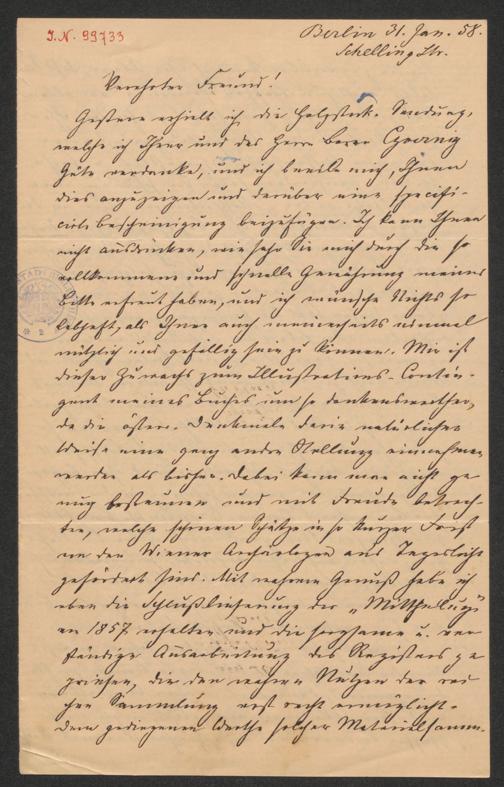 I.N. 99733
Berlin 31. Jan. 58.
Schelling Str.
Verehrter Freund!
Gestern erhielt ich die Holzstock-Sendung,
welche ich Ihrer und des Herrn Baron Czoernig
Güte verdanke, und ich beeile mich, Ihnen
dies anzuzeigen und darüber eine specifi-
cirte Bescheinigung beizufügen. Ich kann Ihnen
nicht ausdrücken, wie sehr Sie mich durch die so
vollkommene und schnelle Gewährung meiner
Bitte erfreut haben, und ich wünsche Nichts so
lebhaft, als Ihnen auch meinerseits einmal
nützlich und gefällig sein zu können. Mir ist
dieser Zuwachs zum Illustrations-Contin-
gent meines Buches um so dankenswerther,
da die österr. Denkmale darin natürlicher
Weise eine ganz andre Stellung einnehmen
werden als bisher. Dabei kann man nicht ge
nug bestaunen und mit Freude betrach-
ten, welche schönen Schätze in so kurzer Frist
von den Wiener Archäologen ans Tageslicht
gefördert sind. Mit wahrem Genuß habe ich
eben die Schlußlieferung der „Mitthelugn"
von 1857 erhalten und die sorgsame u. ver
ständige Ausarbeitung des Registers ge
priesen, die den wahren Nutzen der rei
chen Sammlung erst recht ermöglicht.
dem gediegenen Werthe solcher Materialsamm-